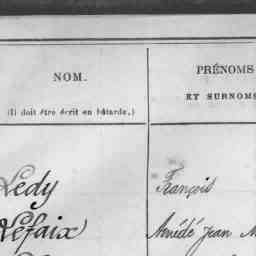 NOM.
PRÉNOMS
ET SURNOMS
(Il doit être écrit en bâtarde.)
Ledy
François
Lefaix
Amédé Jean